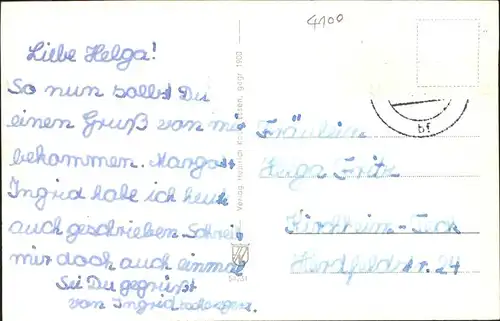 4100
Liebe Helga!
So nun sollst Du
einen Gruß von mir
bekommen. Margot
Ingrid habe ich heute
auch geschrieben Schreib
mir doch auch einmal
Sei Du gegrüßt
von Ingrid
Fräulein
Helga Fritz
Kirchheim-Teck
Hindfeldstr. 24
bf
Verlag Heinrich Essen, gegr. 1903